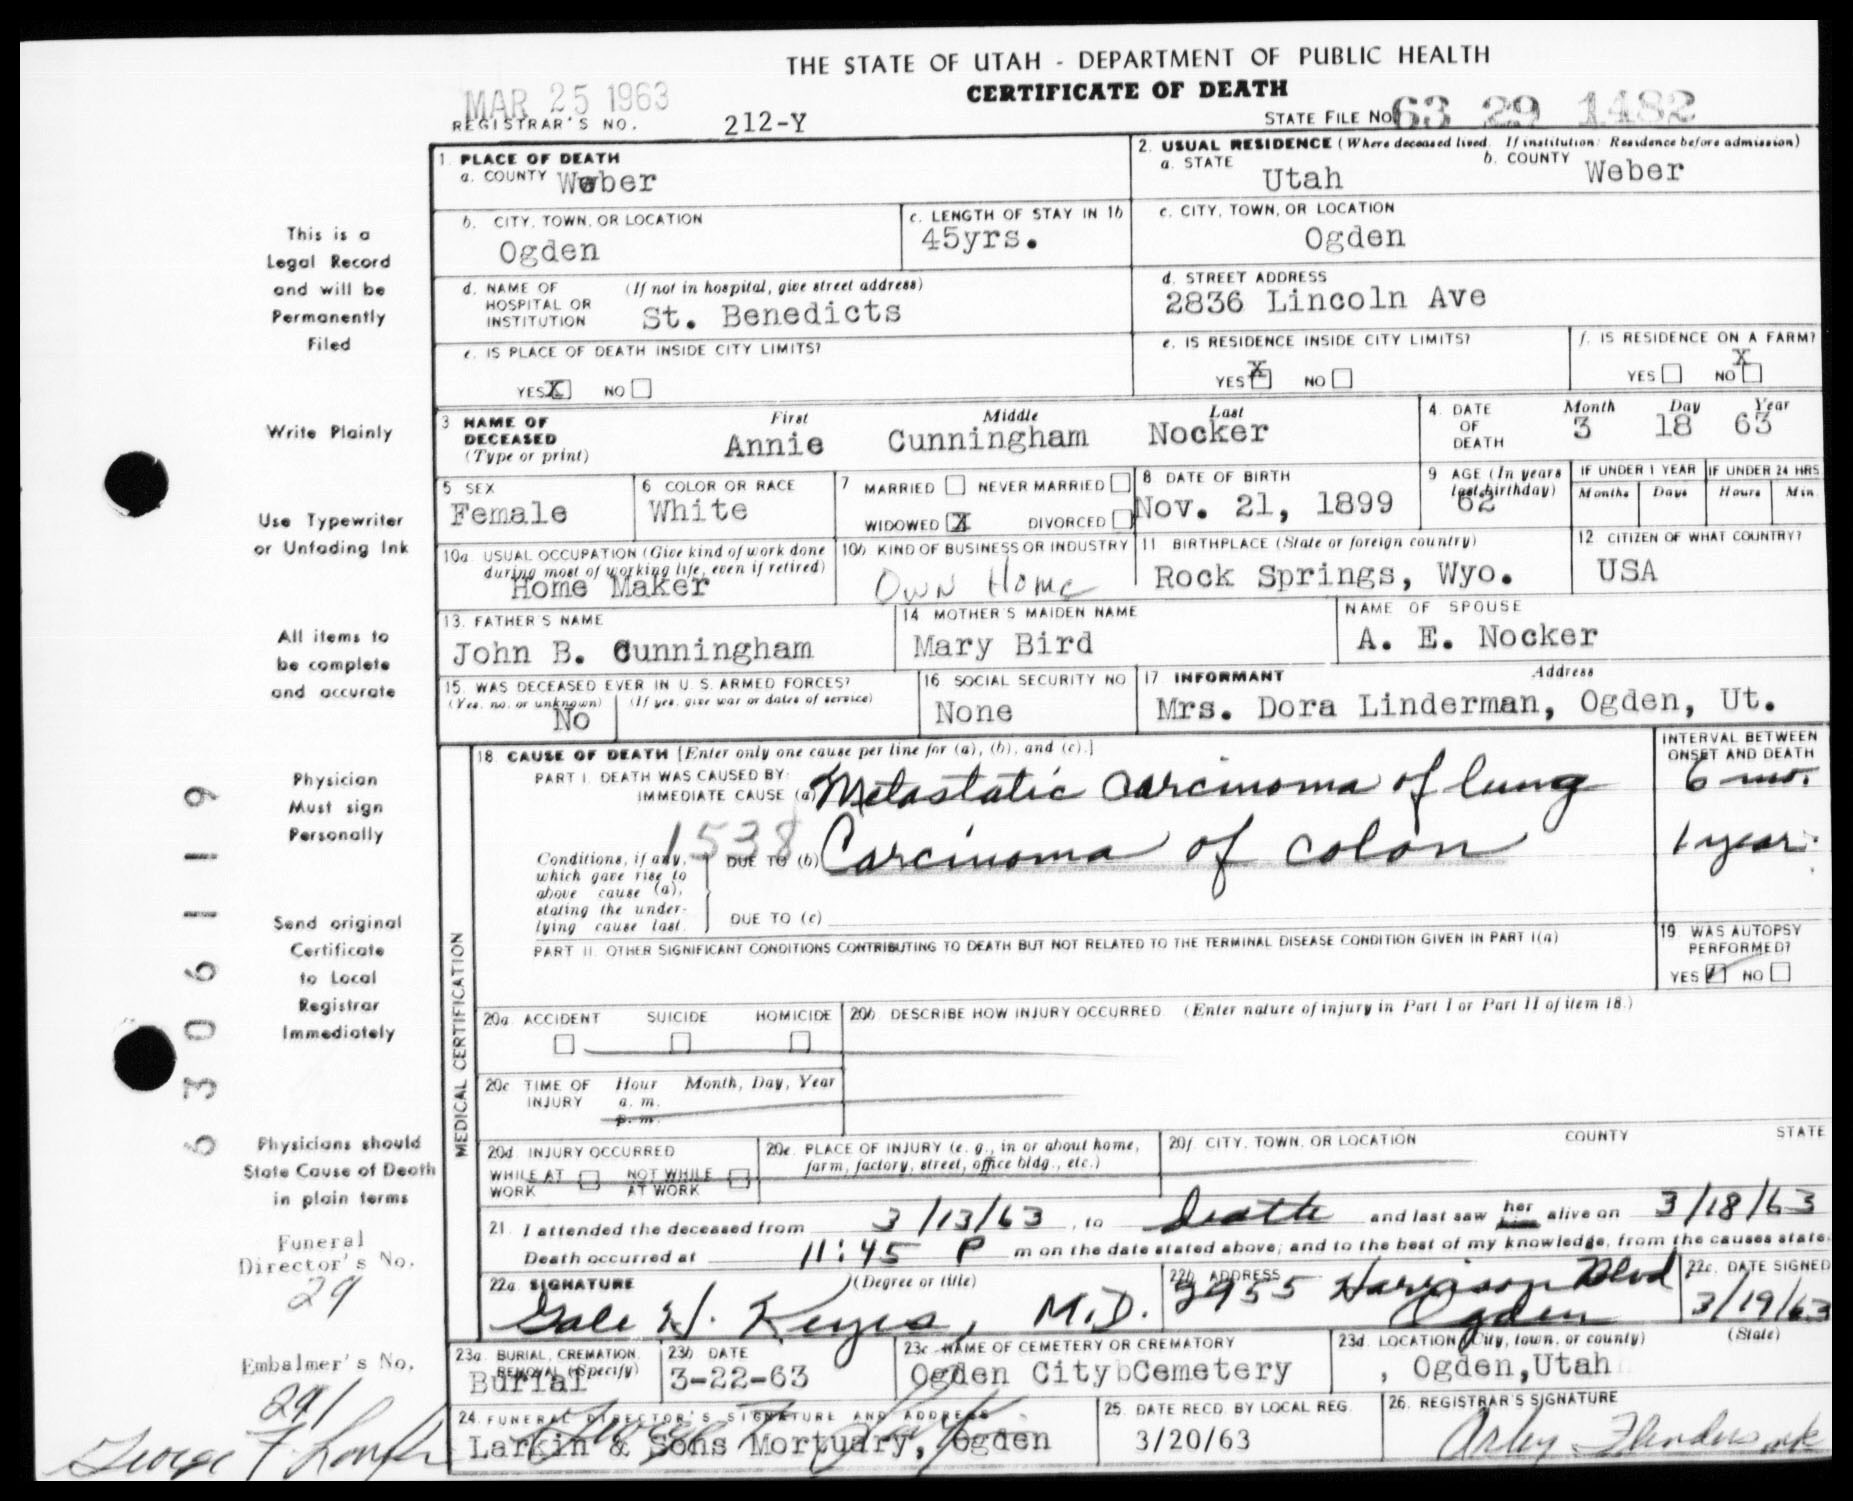 THE STATE OF UTAH - DEPARTMENT OF PUBLIC HEALTH
CERTIFICATE OF DEATH
MAR 25 1963
REGISTRAR'S NO. 212-Y
STATE FILE NO. 63 29 1482
1. PLACE OF DEATH
a. COUNTY Weber
2. USUAL RESIDENCE (Where deceased lived. If institution: Residence before admission)
a. STATE Utah b. COUNTY Weber
b. CITY, TOWN, OR LOCATION
Ogden
c. LENGTH OF STAY IN 1b
45yrs.
c. CITY, TOWN, OR LOCATION
Ogden
d. NAME OF HOSPITAL OR INSTITUTION (If not in hospital, give street address)
St. Benedicts
d. STREET ADDRESS
2836 Lincoln Ave
e. IS PLACE OF DEATH INSIDE CITY LIMITS?
YES X NO
e. IS RESIDENCE INSIDE CITY LIMITS?
YES X NO
f. IS RESIDENCE ON A FARM?
YES NO X
3 NAME OF DECEASED (Type or print)
First Middle Last
Annie Cunningham Nocker
4. DATE OF DEATH
Month Day Year
3 18 63
5 SEX
Female
6 COLOR OR RACE
White
7 MARRIED NEVER MARRIED
WIDOWED X DIVORCED
8 DATE OF BIRTH
Nov. 21, 1899
9 AGE (In years last birthday)
62
IF UNDER 1 YEAR
Months Days
IF UNDER 24 HRS
Hours Min.
10a USUAL OCCUPATION (Give kind of work done during most of working life, even if retired)
Home Maker
10b KIND OF BUSINESS OR INDUSTRY
Own Home
11 BIRTHPLACE (State or foreign country)
Rock Springs, Wyo.
12 CITIZEN OF WHAT COUNTRY?
USA
13. FATHER'S NAME
John B. Cunningham
14 MOTHER'S MAIDEN NAME
Mary Bird
NAME OF SPOUSE
A. E. Nocker
15. WAS DECEASED EVER IN U. S. ARMED FORCES?
(Yes, no, or unknown) (If yes, give war or dates of service)
No
16 SOCIAL SECURITY NO.
None
17 INFORMANT Address
Mrs. Dora Linderman, Ogden, Ut.
MEDICAL CERTIFICATION
18 CAUSE OF DEATH [Enter only one cause per line for (a), (b), and (c).]
INTERVAL BETWEEN ONSET AND DEATH
PART I. DEATH WAS CAUSED BY:
IMMEDIATE CAUSE (a) Metastatic carcinoma of lung 6 mo.
1538
Conditions, if any, which gave rise to above cause (a), stating the underlying cause last.
DUE TO (b) Carcinoma of colon 1 year
DUE TO (c)
PART II. OTHER SIGNIFICANT CONDITIONS CONTRIBUTING TO DEATH BUT NOT RELATED TO THE TERMINAL DISEASE CONDITION GIVEN IN PART I(a)
19 WAS AUTOPSY PERFORMED?
YES NO
20a ACCIDENT SUICIDE HOMICIDE
20b DESCRIBE HOW INJURY OCCURRED (Enter nature of injury in Part I or Part II of item 18.)
20c TIME OF INJURY Hour Month, Day, Year
a. m.
p. m.
20d INJURY OCCURRED
WHILE AT WORK NOT WHILE AT WORK
20e PLACE OF INJURY (e. g., in or about home, farm, factory, street, office bldg., etc.)
20f CITY, TOWN, OR LOCATION COUNTY STATE
21. I attended the deceased from 3/13/63, to Death and last saw her him alive on 3/18/63
Death occurred at 11:45 P m on the date stated above; and to the best of my knowledge, from the causes state
22a SIGNATURE (Degree or title)
Gale H. Keyes, M.D.
22b ADDRESS
3955 Harrison Blvd
Ogden
22c. DATE SIGNED
3/19/63
23a BURIAL, CREMATION, REMOVAL (Specify)
Burial
23b DATE
3-22-63
23c NAME OF CEMETERY OR CREMATORY
Ogden CitybCemetery
23d. LOCATION (City, town, or county) (State)
, Ogden,Utah
24. FUNERAL DIRECTOR'S SIGNATURE AND ADDRESS
Larkin & Sons Mortuary, Ogden
25. DATE RECD. BY LOCAL REG.
3/20/63
26. REGISTRAR'S SIGNATURE
This is a
Legal Record
and will be
Permanently
Filed
Write Plainly
Use Typewriter
or Unfading Ink
All items to
be complete
and accurate
Physician
Must sign
Personally
Send original
Certificate
to Local
Registrar
Immediately
Physicians should
State Cause of Death
in plain terms
Funeral
Director's No.
29
Embalmer's No.
291
George F.
6306119